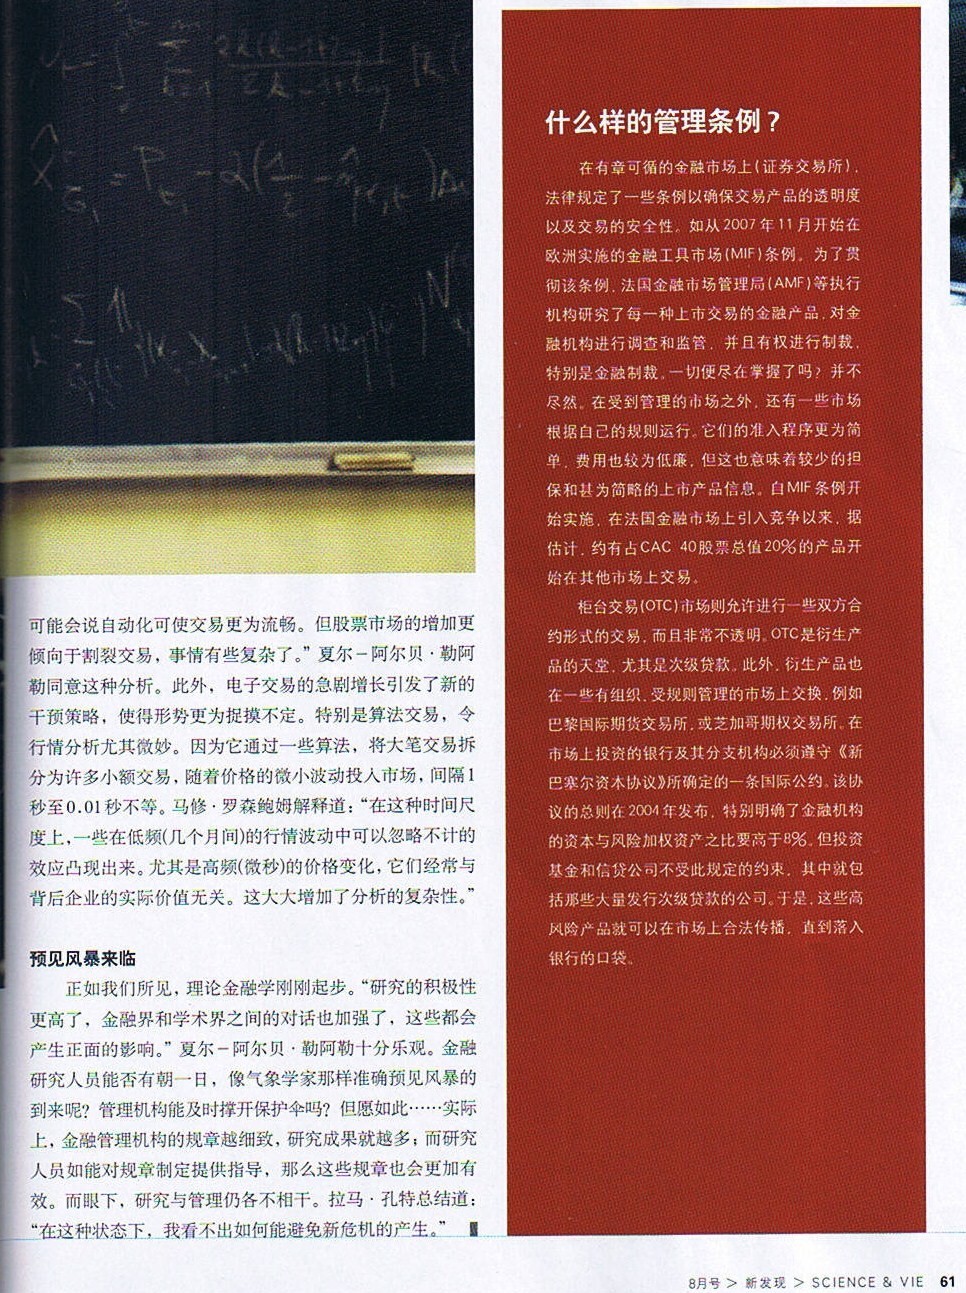 可能会说自动化可使交易更为流畅。但股票市场的增加更
倾向于割裂交易，事情有些复杂了。”夏尔－阿尔贝·勒阿
勒同意这种分析。此外，电子交易的急剧增长引发了新的
干预策略，使得形势更为捉摸不定。特别是算法交易，令
行情分析尤其微妙。因为它通过一些算法，将大笔交易拆
分为许多小额交易，随着价格的微小波动投入市场，间隔1
秒至0.01秒不等。马修·罗森鲍姆解释道：“在这种时间尺
度上，一些在低频(几个月间)的行情波动中可以忽略不计的
效应凸现出来。尤其是高频(微秒)的价格变化，它们经常与
背后企业的实际价值无关。这大大增加了分析的复杂性。”
预见风暴来临
正如我们所见，理论金融学刚刚起步。“研究的积极性
更高了，金融界和学术界之间的对话也加强了，这些都会
产生正面的影响。”夏尔－阿尔贝·勒阿勒十分乐观。金融
研究人员能否有朝一日，像气象学家那样准确预见风暴的
到来呢？管理机构能及时撑开保护伞吗？但愿如此……实际
上，金融管理机构的规章越细致，研究成果就越多；而研究
人员如能对规章制定提供指导，那么这些规章也会更加有
效。而眼下，研究与管理仍各不相干。拉马·孔特总结道：
“在这种状态下，我看不出如何能避免新危机的产生。”
什么样的管理条例？
在有章可循的金融市场上(证券交易所)，
法律规定了一些条例以确保交易产品的透明度
以及交易的安全性。如从2007年11月开始在
欧洲实施的金融工具市场(MIF)条例。为了贯
彻该条例，法国金融市场管理局(AMF)等执行
机构研究了每一种上市交易的金融产品，对金
融机构进行调查和监管，并且有权进行制裁，
特别是金融制裁。一切便尽在掌握了吗？并不
尽然。在受到管理的市场之外，还有一些市场
根据自己的规则运行。它们的准入程序更为简
单，费用也较为低廉，但这也意味着较少的担
保和甚为简略的上市产品信息。自MIF条例开
始实施，在法国金融市场上引入竞争以来，据
估计，约有占CAC 40股票总值20%的产品开
始在其他市场上交易。
柜台交易(OTC)市场则允许进行一些双方合
约形式的交易，而且非常不透明。OTC是衍生产
品的天堂，尤其是次级贷款。此外，衍生产品也
在一些有组织、受规则管理的市场上交换，例如
巴黎国际期货交易所，或芝加哥期权交易所。在
市场上投资的银行及其分支机构必须遵守《新
巴塞尔资本协议》所确定的一条国际公约。该协
议的总则在2004年发布，特别明确了金融机构
的资本与风险加权资产之比要高于8%。但投资
基金和信贷公司不受此规定的约束，其中就包
括那些大量发行次级贷款的公司。于是，这些高
风险产品就可以在市场上合法传播，直到落入
银行的口袋。
8月号 > 新发现 > SCIENCE & VIE 61